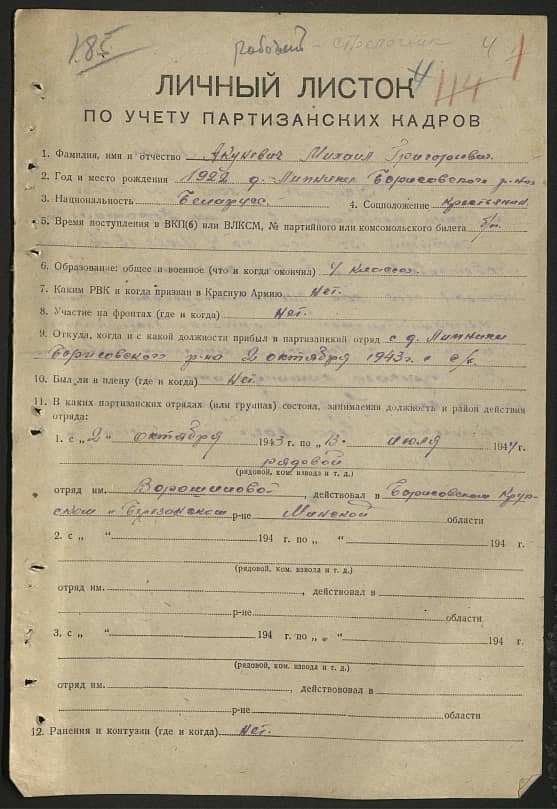 185 рабочий – 4 1
ЛИЧНЫЙ ЛИСТОК 4 114
ПО УЧЕТУ ПАРТИЗАНСКИХ КАДРОВ
1. Фамилия, имя и отчество Акуневич Михаил Григорьевич.
2. Год и место рождения 1922 д. Липники Борисовского р-на
3. Национальность Беларус. 4. Соцположение крестьянин.
5. Время поступления в ВКП(б) или ВЛКСМ, № партийного или комсомольского билета б/п.
6. Образование: общее и военное (что и когда окончил) 4 класса.
7. Каким РВК и когда призван в Красную Армию Нет.
8. Участие на фронтах (где и когда) Нет.
9. Откуда, когда и с какой должности прибыл в партизанский отряд с д. Липники
Борисовского р-на 2 октября 1943 г. с с/х
10. Был ли в плену (где и когда) Нет.
11. В каких партизанских отрядах (или группах) состоял, занимаемая должность и район действия
отряда:
1. с „ 2 “ октября 1943 г. по „ 13 “ июля 1944 г.
рядовой
(рядовой, ком. взвода и т. д.)
отряд им. Ворошилова, действовал в Борисовском Круп-
ском и Березинском р-не Минской области
2. с „ “ 194 г. по „ “ 194 г.
(рядовой, ком. взвода и т. д.)
отряд им. , действовал в
р-не области
3. с „ “ 194 г. по „ “ 194 г.
(рядовой, ком. взвода и т. д.)
отряд им. , действововал в
р-не области
12. Ранения и контузии (где и когда) Нет.